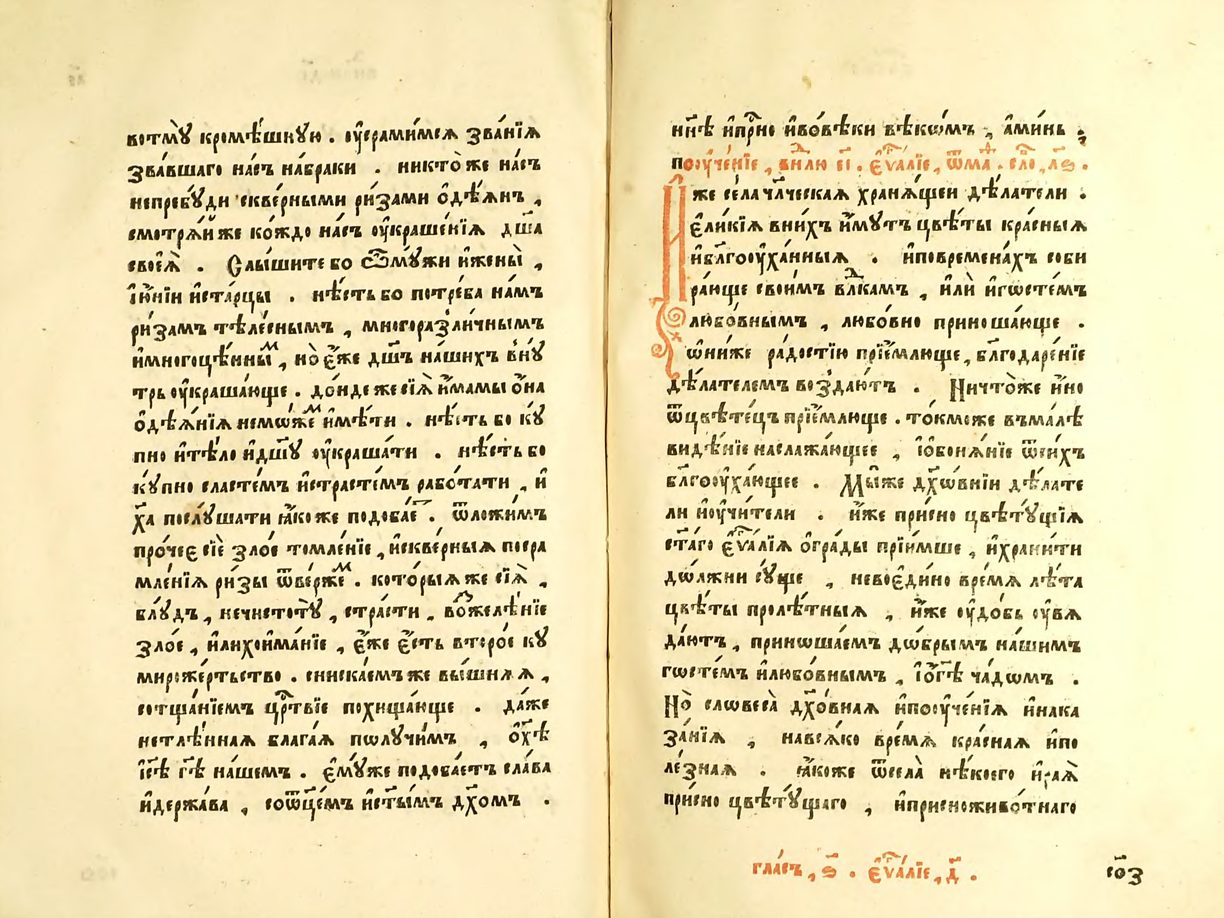 вотмꙋ̀ кромѣ́шнꙋю . оу҆срами́мсѧ зва́нїѧ
зва́вшаго на́съ на́браки . никто́же на́съ
непребꙋ́ди скве́рными ри́зами ѻ҆дѣ́ѧнъ ,
смотрѧ́йже ко́ждо на́съ оу҆краше́нїѧ дш҃а
своеѧ̀ . Слы́шите бо ѿмꙋ́жи и҆жены̀ ,
ї҆ю́нїи и҆ста́рцы . нѣ́сть бо потре́ба на́мъ
ри́замъ тѣле́снымъ , многоразли́чнымъ
и҆многоцѣ́нныⷨ , но є҆́же дш҃ъ на́шихъ вꙋ́нꙋ
трь оу҆краша́юще . до́ндеже сїѧ̀ и҆́мамы ѻ҆на
ѻ҆дѣѧ́нїѧ немо́жеⷨ и҆мѣ́ти . нѣ́сть бо кꙋ́
пно и҆тѣ́ло и҆дш҃ꙋ оу҆краша́ти . нѣ́сть бо
кꙋ́пно сласте́мъ и҆страсте́мъ рабо́тати , и҆
х҃а послꙋ́шати ꙗ҆́коже подоба́еⷮ . ѿложи́мъ
про́чее сїѐ зло́е томле́нїе , и҆скве́рныѧ посра
мле́нїѧ ри́зы ѿве́ржеⷨ . кото́рыѧже сїѧ̀ ,
блꙋ́дъ , нечистотꙋ̀ , стра́сти , вожелѣ́нїе
зло́е , и҆лихоима́нїе , є҆́же є҆́сть второ́е кꙋ
миоже́ртьство . сниска́емъже вы́шнѧѧ ,
сотща́нїемъ црⷭ҇твїе похища́юще . да́же
нетлѣ́ннаѧ блага́ѧ полꙋчи́мъ , ѻ҆хⷭ҇ѣ
і҆и҃сѣ гд҃ѣ на́шемъ . є҆мꙋ́же подоба́етъ сла́ва
и҆держа́ва , соѿце́мъ и҆ст҃ы́мъ дх҃омъ .
нн҃ѣ и҆прⷭ҇но и҆вовѣ́ки вѣкѡ́мъ , а҆ми́нь .
поꙋче́нїе , внⷣлю є҃і . є҆ѵⷢ҇а́лїе , ѿмⷴ҇а . сло , л҃ѕ .
И҆́же села̀ чл҃ческаѧ хранѧ́щеи дѣ́латели .
є҆ли́кїѧ вни́хъ и҆́мꙋтъ цвѣ́ты кра́сныѧ
и҆бл҃гоꙋха́нныѧ . и҆повремена́хъ соби
ра́юще свои́мъ влⷣкамъ , и҆лѝ и҆госте́мъ
любо́внымъ , любо́вно принося́ще .
ѡ҆ни́же ра́достїю прїе́млюще , бл҃годаре́нїе
дѣ́лателемъ воздаю́тъ . Ничто́же и҆́но
ѿцвѣте́цъ прїе́млюще . то́кможе въма́лѣ
видѣ́нїе наслажа́ющее , і҆ѻ҆боня́нїе ѿси́хъ
бл҃гоꙋха́ющее . Мы́же дх҃о́внїи дѣ́лате
ли и҆ᲂу҆чи́тели . и҆́же при́сно цвѣтꙋ́щїѧ
ст҃а́го є҆ѵⷢ҇а́лїѧ ѻ҆гра́ды прїи́мше , и҆храни́ти
до́лжни сꙋ́ще , невоеди́но вре́мѧ лѣ́та
цвѣ́ты пролѣ́тныѧ , и҆́же оу҆до́бь оу҆вѧ
даю́тъ , приноша́емъ до́брымъ на́шимъ
госте́мъ и҆любо́внымъ , і҆ѻ҆гдⷭ҇ѣ ча́домъ .
Но̀ словеса̀ дх҃о́внаѧ и҆поꙋче́нїѧ и҆нака
за́нїѧ , навсѧ́ко вре́мѧ кра́снаѧ и҆по
ле́знаѧ . ꙗ҆́коже ѿсела̀ нѣ́коего и҆раѧ̀
при́сно цвѣтꙋ́щаго , и҆присноживо́тнаго
гла́съ , ѕ҃ . є҆ѵⷢ҇а́лїе , д҃ .
с҃ѻз